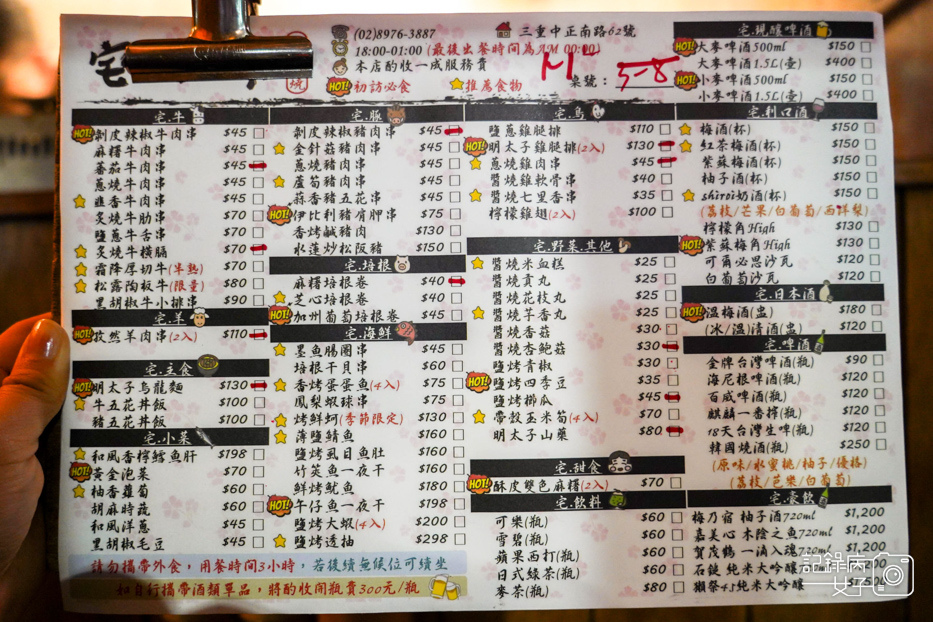 宅
燒
(02)8976-3887
三重中正南路62號
18:00-01:00 (最後出餐時間為AM 00:00)
本店酌收一成服務費
桌號：5-8
HOT! 初訪必食
推薦食物
宅.牛
HOT! 剝皮辣椒牛肉串 $45
麻糬牛肉串 $45
蕃茄牛肉串 $45
蔥燒牛肉串 $45
雞香牛肉串 $45
炙燒牛肋串 $70
鹽蔥牛舌串 $70
炙燒牛橫膈 $70
霜降厚切牛(半熟) $70
松露陶板牛(限量) $80
黑胡椒牛小排串 $90
宅.羊
HOT! 孜然羊肉串(2入) $110
宅.主食
HOT! 明太子烏龍麵 $130
牛五花丼飯 $100
豬五花丼飯 $100
宅.小菜
和風香檸鱈魚肝 $198
HOT! 黃金泡菜 $70
柚香蘿蔔 $60
胡麻時蔬 $60
和風洋蔥 $45
黑胡椒毛豆 $45
宅.豚
剝皮辣椒豬肉串 $45
金針菇豬肉串 $45
蔥燒豬肉串 $45
蘆筍豬肉串 $45
蒜香豬五花串 $45
HOT! 伊比利豬肩胛串 $75
香烤鹹豬肉 $130
水蓮炒松阪豬 $150
宅.培根
麻糬培根卷 $40
芝心培根卷 $40
HOT! 加州葡萄培根卷 $40
宅.海鮮
墨魚腸團串 $45
培根干貝串 $60
香烤蛋蛋魚(4入) $75
鳳梨蝦球串 $75
香烤鮮蚵(季節限定) $130
薄鹽鯖魚 $160
鹽烤虱目魚肚 $160
竹筴魚一夜干 $160
鮮烤魷魚 $180
HOT! 午仔魚一夜干 $198
鹽烤大蝦(4入) $200
鹽烤透抽 $298
宅.鳥
鹽蔥雞腿排 $110
HOT! 明太子雞腿排(2入) $130
蔥燒雞肉串 $45
醬燒雞軟骨串 $40
醬燒七里香串 $35
檸檬雞翅(2入) $100
宅.野菜.其他
醬燒米血糕 $25
醬燒貢丸 $25
醬燒花枝丸 $25
醬燒芋香丸 $25
醬燒香菇 $30
醬燒杏鮑菇 $30
鹽烤青椒 $30
HOT! 鹽烤四季豆 $35
鹽烤櫛瓜 $45
帶殼玉米筍(4入) $70
明太子山藥 $80
宅.甜食
HOT! 酥皮雙色麻糬(2入) $70
宅.飲料
可樂(瓶) $60
雪碧(瓶) $60
蘋果西打(瓶) $60
日式綠茶(瓶) $60
麥茶(瓶) $80
宅.現釀啤酒
HOT! 大麥啤酒500ml $150
大麥啤酒1.5L(壺) $400
HOT! 小麥啤酒500ml $150
小麥啤酒1.5L(壺) $400
宅.利口酒
梅酒(杯) $150
紅茶梅酒(杯) $150
紫蘇梅酒(杯) $150
柚子酒(杯) $150
shiroi奶酒(杯) $150
(荔枝/芒果/白葡萄/西洋梨)
檸檬角High $130
HOT! 紫蘇梅角High $130
可爾必思沙瓦 $120
白葡萄沙瓦 $120
宅.日本酒
HOT! 溫梅酒(盅) $180
(冰/溫)清酒(盅) $120
宅.啤酒
金牌台灣啤酒(瓶) $90
海尼根啤酒(瓶) $120
百威啤酒(瓶) $120
麒麟一番榨(瓶) $120
18天台灣生啤(瓶) $120
韓國燒酒(瓶) $250
(原味/水蜜桃/柚子/優格)
(荔枝/芭樂/白葡萄)
宅.豪飲
梅乃宿 柚子酒720ml $1,200
嘉美心 木陰之魚720ml $1,200
賀茂鶴 一滴入魂720ml $1,200
石鎚 純米大吟釀
獺祭45純米大吟釀
請勿攜帶外食，用餐時間3小時，若後續無候位可續坐
如自行攜帶酒類單品，將酌收開瓶費300元/瓶
記錄病女子